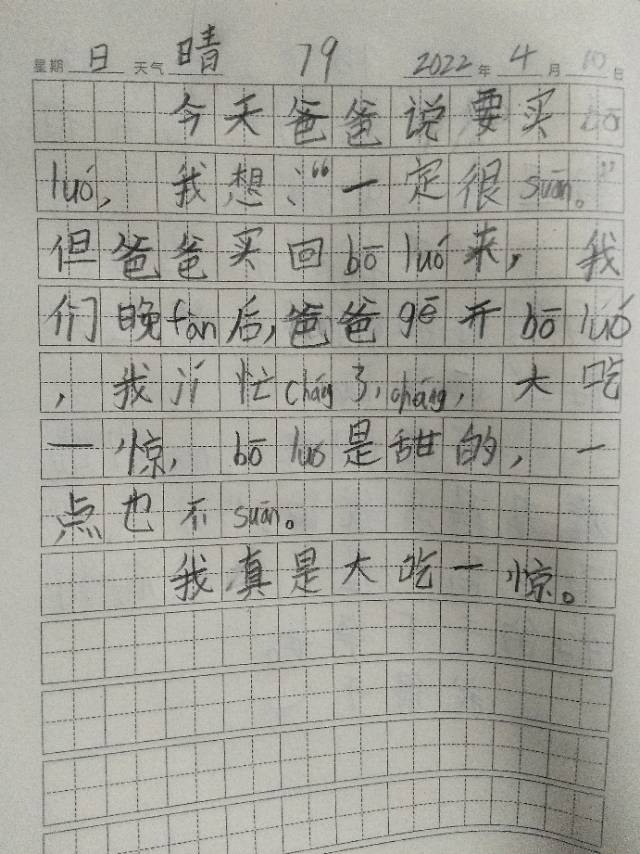 星期 日 天气 晴 79 2022 年 4 月 10 日
今天爸爸说要买bō
luó，我想：“一定很suān。”
但爸爸买回bō luó来，我
们晚fàn后，爸爸gē开bō luó
，我 忙cháng了，cháng，大吃
一惊，bō luó是甜的，一
点也不suān。
我真是大吃一惊。